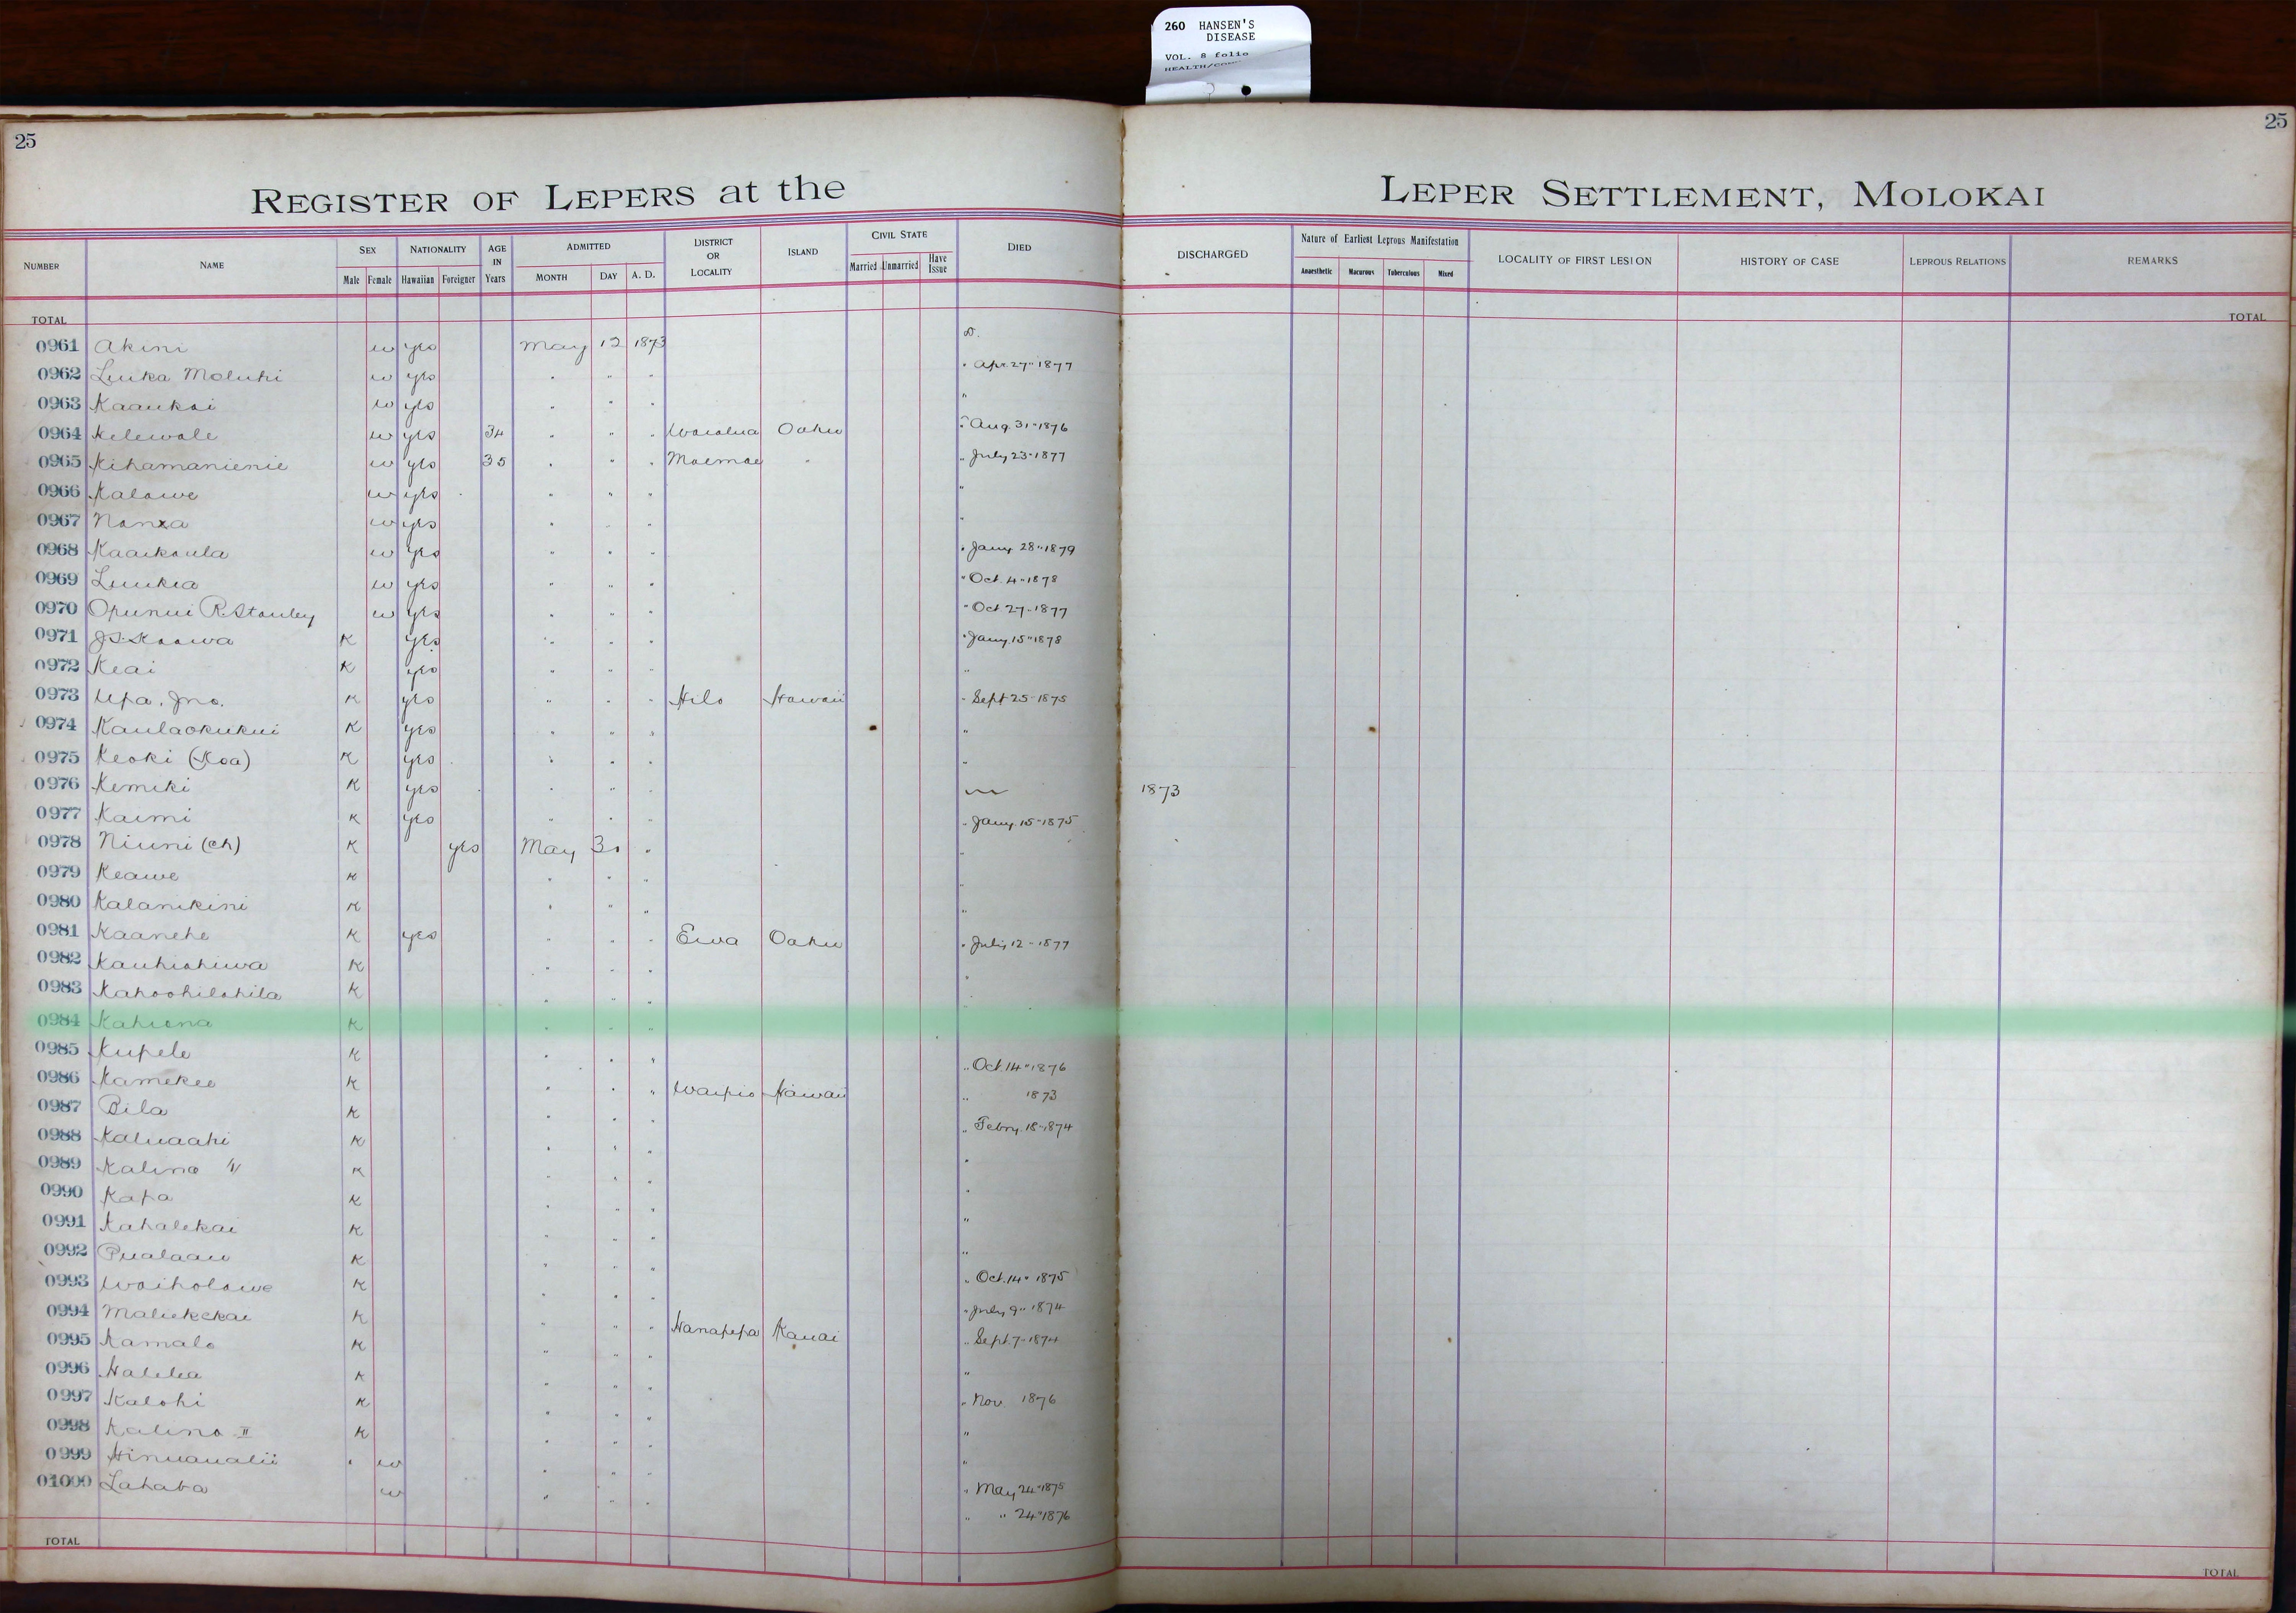 260 HANSEN'S
DISEASE
VOL. 8 folio
25
25
REGISTER OF LEPERS at the LEPER SETTLEMENT, MOLOKAI
NUMBER NAME SEX NATIONALITY AGE IN Years ADMITTED DISTRICT OR LOCALITY ISLAND CIVIL STATE DIED DISCHARGED Nature of Earliest Leprous Manifestation LOCALITY OF FIRST LESION HISTORY OF CASE LEPROUS RELATIONS REMARKS
Male Female Hawaiian Foreigner MONTH DAY A. D. Married Unmarried Have Issue Anaesthetic Macurous Tuberculous Mixed
TOTAL TOTAL
0961 Akini w yes May 12 1873 D.
0962 Luika Moluhi w yes " " " " Apr. 27" 1877
0963 Kaaukai w yes " " " "
0964 Kelewale w yes 34 " " " Waialua Oahu " Aug. 31" 1876
0965 Kihamanienie w yes 35 " " " Moemoe " " July 23" 1877
0966 Kalawe w yes " " " "
0967 w yes " " " "
0968 Kaaikaula w yes " " " " Jany. 28" 1879
0969 Luukia w yes " " " " Oct. 4" 1878
0970 Opunui R. Stanley w yes " " " " Oct 27" 1877
0971 K yes " " " " Jany. 15" 1878
0972 Keai K yes " " " "
0973 Upa. Jno. K yes " " " Hilo Hawaii " Sept 25" 1875
0974 Kaulaokukui K yes " " " "
0975 Keoki (Koa) K yes " " " "
0976 Kemiki K yes " " " 1873
0977 Kaimi K yes " " " " Jany. 15" 1875
0978 Niuni (ch) K yes May 30 " "
0979 Keawe K " " " "
0980 Kalanikini K " " " "
0981 Kaanehe K yes " " " Ewa Oahu " July 12" 1877
0982 Kauhiahiwa K " " " "
0983 Kahoohilahila K " " " "
0984 Kahiona K " " "
0985 Kupele K " " " " Oct. 14" 1876
0986 Kamekeo K " " " Waipio Hawaii " 1873
0987 Bila K " " " " Febry. 18" 1874
0988 Kaluaahi K " " " "
0989 Kalino K " " " "
0990 Kapa K " " " "
0991 Kahalekai K " " " "
0992 Pualaau K " " " " Oct. 14" 1875
0993 Waiholowe K " " " " July 9" 1874
0994 Maliekekai K " " " Hanapepa Kauai " Sept. 7" 1874
0995 Kamalo K " " " "
0996 Halelea K " " " " Nov. 1876
0997 Kalohi K " " " "
0998 Kalino II K " " " "
0999 Hinuaualii w " " " " May 24" 1875
01000 Lahaba w " " " " " 24" 1876
TOTAL TOTAL